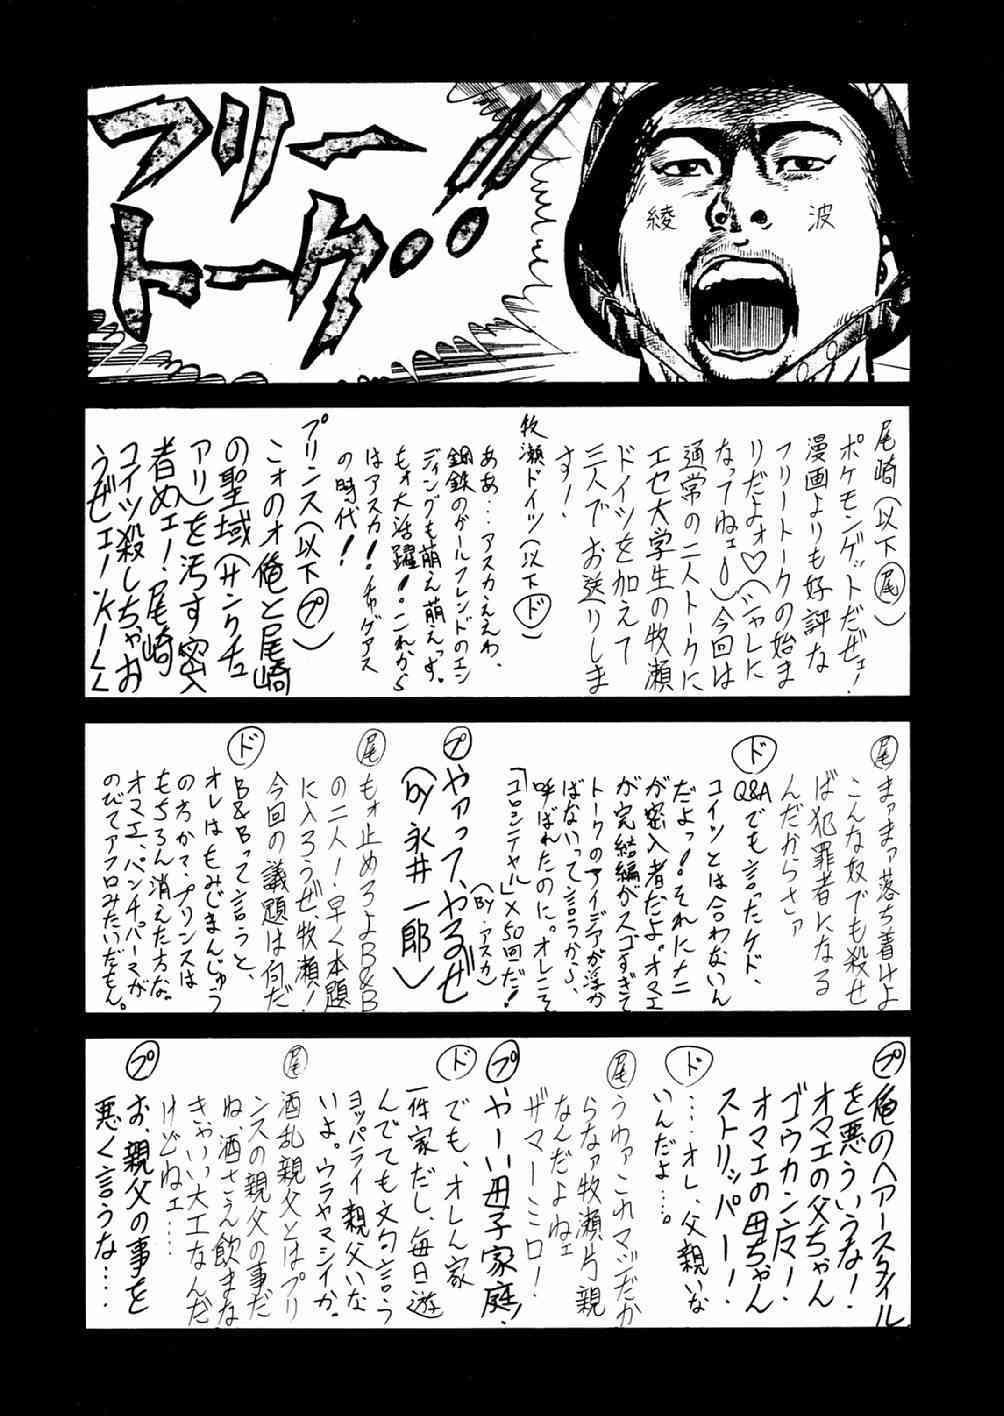 フリー
トーク!!
綾波
尾崎(以下尾)
ポケモンゲットだぜェ!
漫画よりも好評な
フリートークの始ま
りだよォ♡(シャレに
なってねェー)今回は
通常の二人トークに
エセ大学生の牧瀬
ドイツを加えて
三人でお送りしま
す!
牧瀬ドイツ(以下ド)
ああ…アスカええわ、
鋼鉄のガールフレンドのエン
ディングも萌え萌えっす。
もォ大活躍!これから
はアスカ!チャゲアス
の時代!
プリンス(以下プ)
こォのォ俺と尾崎
の聖域(サンクチュ
アリ)を汚す密入
者めェ!尾崎
コイツ殺しちゃお
うぜェー
尾
まァまァ落ち着けよ
こんな奴でも殺せ
ば犯罪者になる
んだからさァ
ド
Q&Aでも言ったケド、
コイツとは合わないん
だよっ!それにナニ
が密入者だよ。オマエ
が完結編がスゴすぎて
トークのアイデアが浮か
ばないって言うから、
呼ばれたのに。オレこそ
「コロシテヤル」×50回だ!
(Byアスカ)
プ
やァって、やるぜ
(by永井一郎)
尾
もォ止めろよB&B
の二人!早く本題
に入ろうぜ、牧瀬!
今回の議題は何だ
ド
B&Bって言うと、
オレはもみじまんじゅう
の方かで、プリンスは
もちろん消えた方な。
オマエ、パンチパーマが
のびてアフロみたいだもん。
プ
俺のヘアースタイル
を悪ういうな!
オマエの父ちゃん
ゴウカン魔!
オマエの母ちゃん
ストリッパー!
ド
……オレ、父親いな
いんだよ…。
尾
うわァこれマジだか
らなァ牧瀬片親
なんだよねェ
ザマーミロ!
プ
やーい母子家庭!
ド
でも、オレん家
一件家だし、毎日遊
んでても文句言う
ヨッパライ親父いな
いよ。ウラヤマシイか。
尾
酒乱親父とはプリ
ンスの親父の事だ
ね、酒さえ飲まな
きゃいい大工なんだ
けどねェ……
プ
お、親父の事を
悪く言うな……